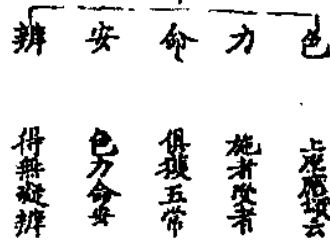 色 力 命 安 辨
上座頌云
施者受者
俱獲五常
色力命安
得無礙辨